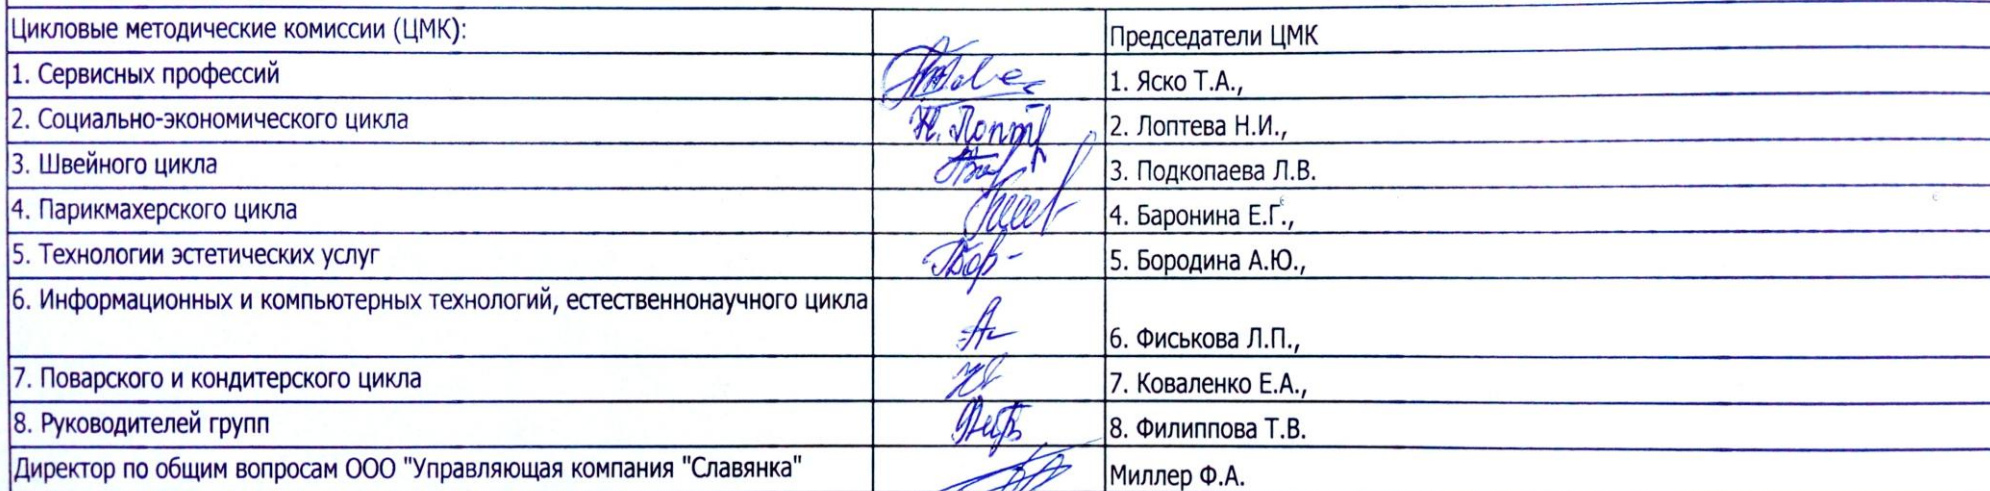 Цикловые методические комиссии (ЦМК):
Председатели ЦМК
1. Сервисных профессий
1. Яско Т.А.,
2. Социально-экономического цикла
Н. Лопт
2. Лоптева Н.И.,
3. Швейного цикла
3. Подкопаева Л.В.
4. Парикмахерского цикла
4. Баронина Е.Г.,
5. Технологии эстетических услуг
5. Бородина А.Ю.,
6. Информационных и компьютерных технологий, естественнонаучного цикла
6. Фиськова Л.П.,
7. Поварского и кондитерского цикла
7. Коваленко Е.А.,
8. Руководителей групп
8. Филиппова Т.В.
Директор по общим вопросам ООО "Управляющая компания "Славянка"
Миллер Ф.А.